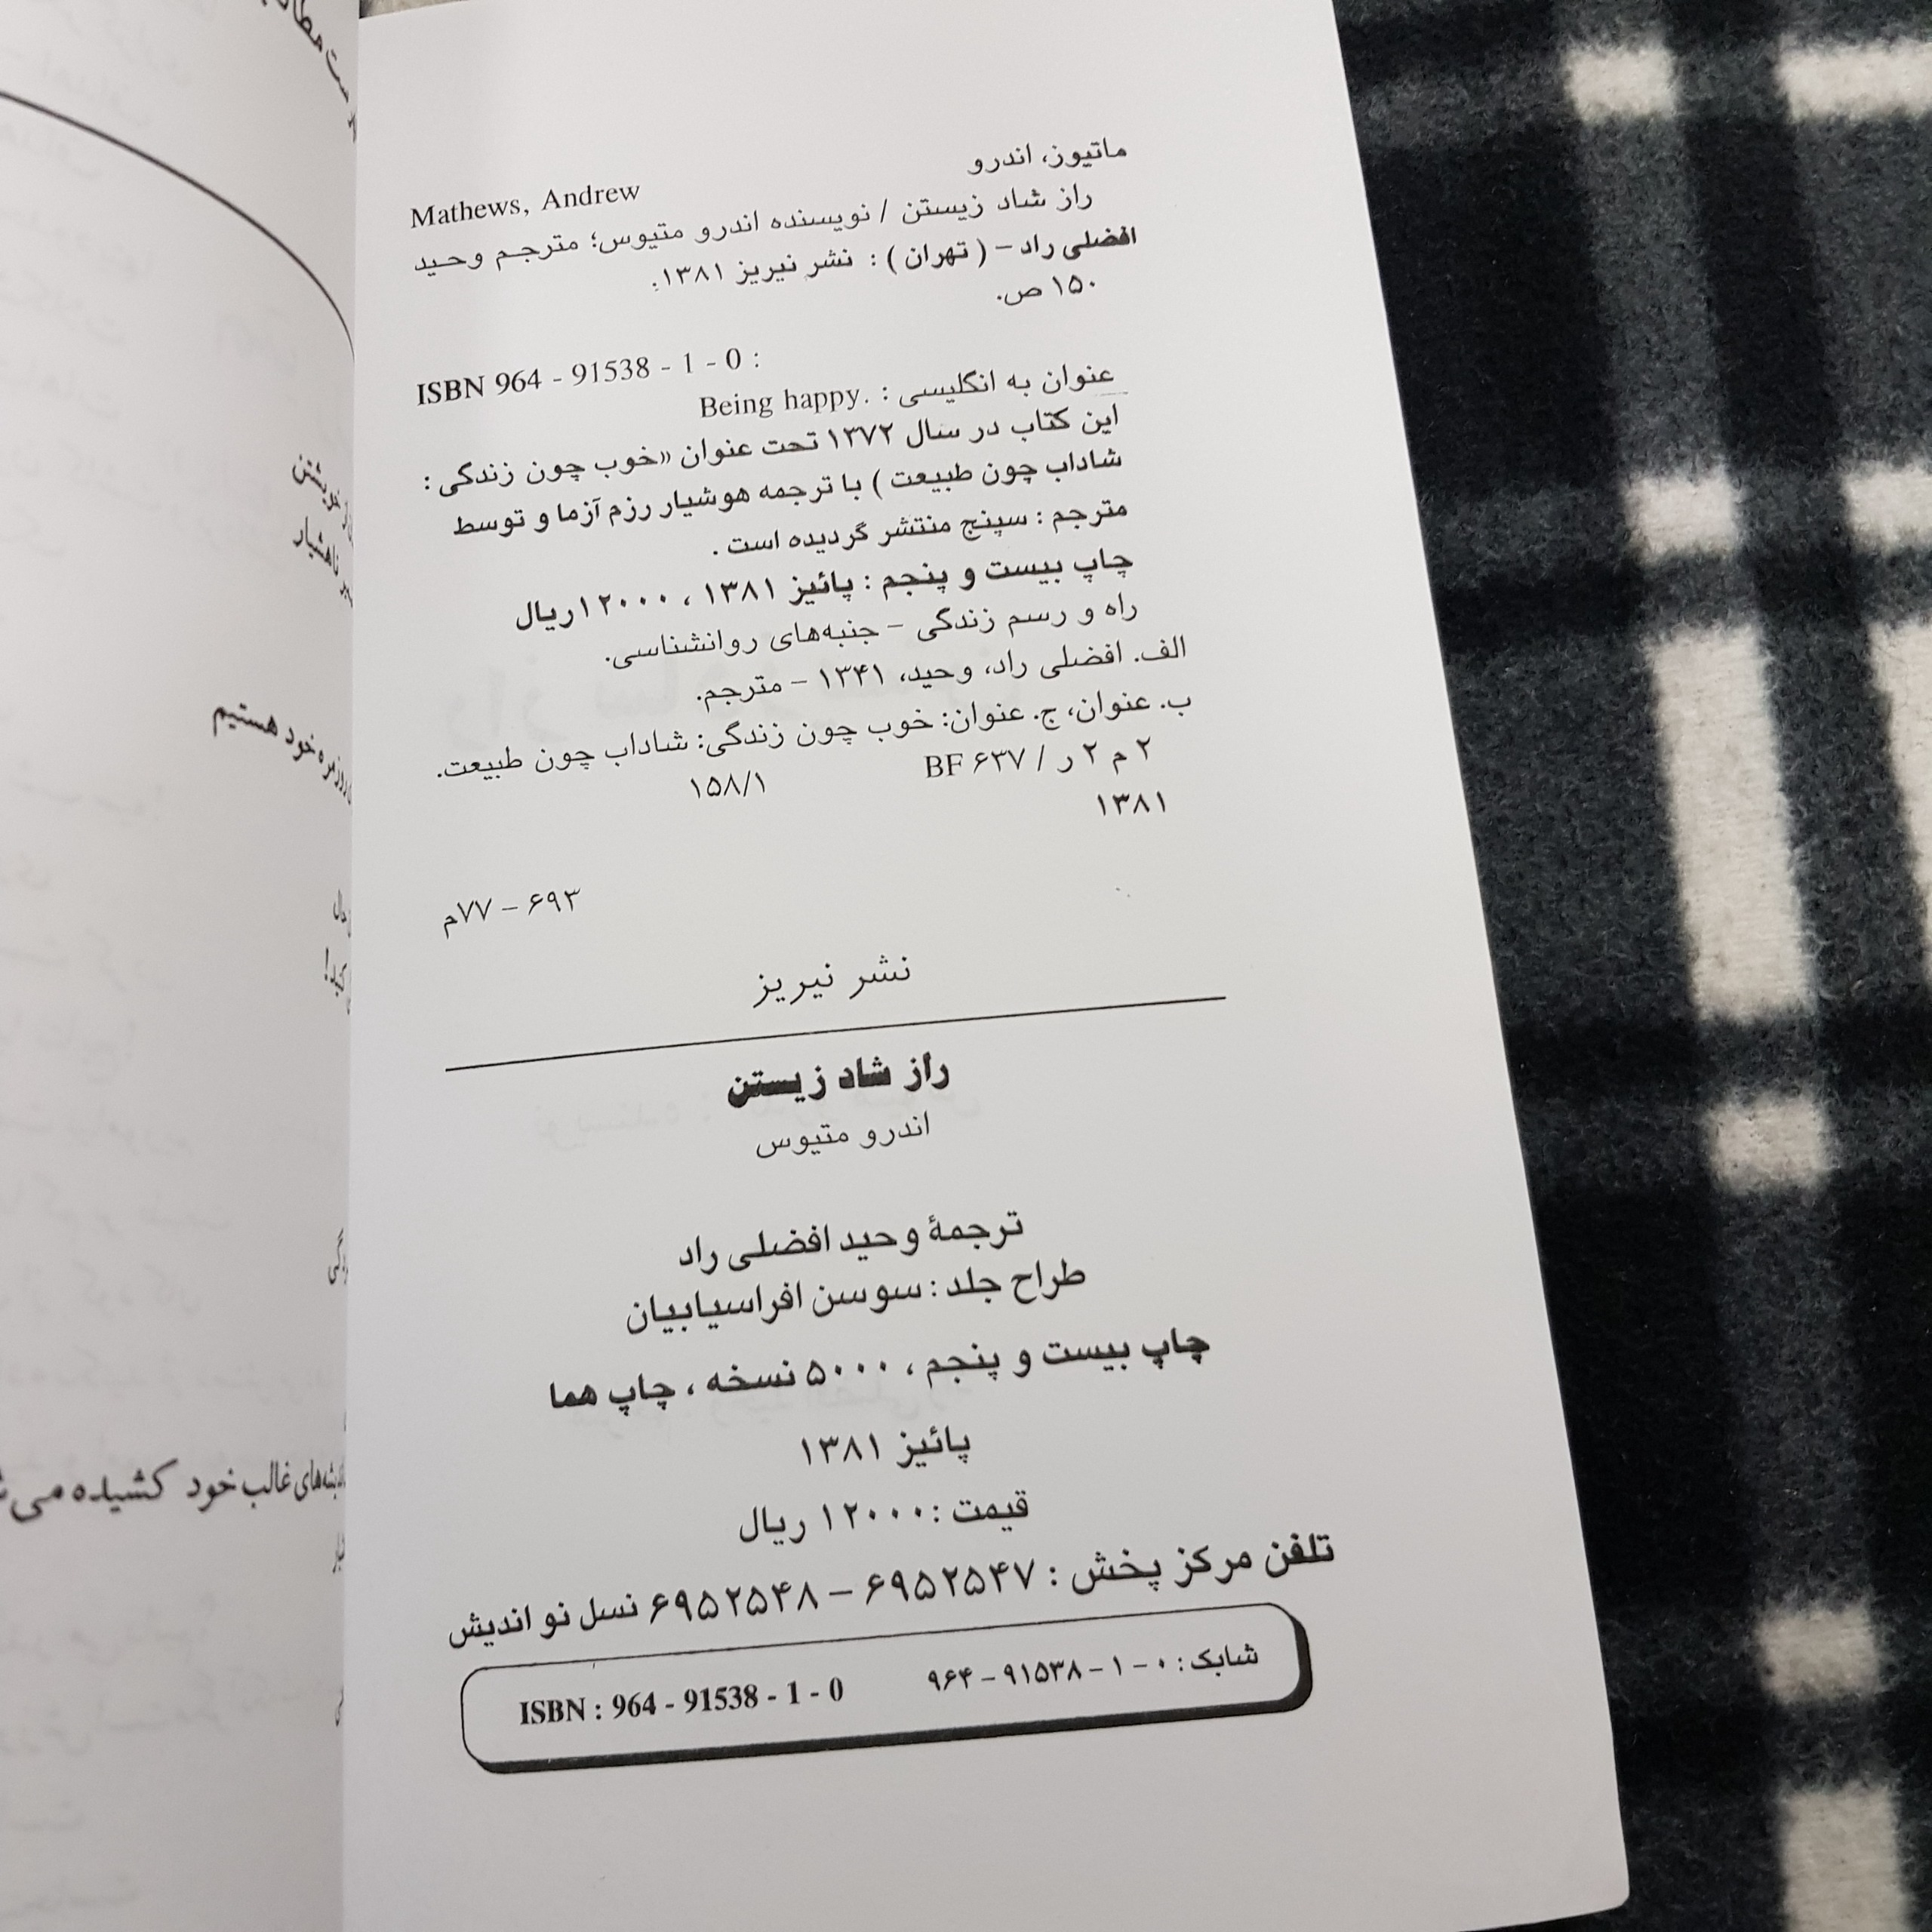 ماتیوز، اندرو
Mathews, Andrew
راز شاد زیستن / نویسنده اندرو متیوس؛ مترجم وحید
افضلی راد – ( تهران ) : نشر نیریز ۱۳۸۱.
۱۵۰ ص.
ISBN 964 - 91538 - 1 - 0 :
عنوان به انگلیسی : Being happy.
این کتاب در سال ۱۳۷۲ تحت عنوان «خوب چون زندگی :
شاداب چون طبیعت ) با ترجمه هوشیار رزم آزما و توسط
مترجم : سپنج منتشر گردیده است .
چاپ بیست و پنجم : پائیز ۱۳۸۱ ، ۱۲۰۰۰ریال
راه و رسم زندگی – جنبه‌های روانشناسی.
الف. افضلی راد، وحید، ۱۳۴۱ – مترجم.
ب. عنوان، ج. عنوان: خوب چون زندگی: شاداب چون طبیعت.
۲ م ۲ ر / BF ۶۳۷
۱۵۸/۱
۱۳۸۱
۶۹۳ – ۷۷م
نشر نیریز
راز شاد زیستن
اندرو متیوس
ترجمهٔ وحید افضلی راد
طراح جلد : سوسن افراسیابیان
چاپ بیست و پنجم ، ۵۰۰۰ نسخه ، چاپ هما
پائیز ۱۳۸۱
قیمت : ۱۲۰۰۰ ریال
تلفن مرکز پخش : ۶۹۵۲۵۴۷ – ۶۹۵۲۵۴۸ نسل نو اندیش
شابک : ۰ – ۱ – ۹۱۵۳۸ – ۹۶۴
ISBN : 964 - 91538 - 1 - 0
خویشتن
ناهشیار
روزمره خود هستیم
کنید!
غالب خود کشیده می